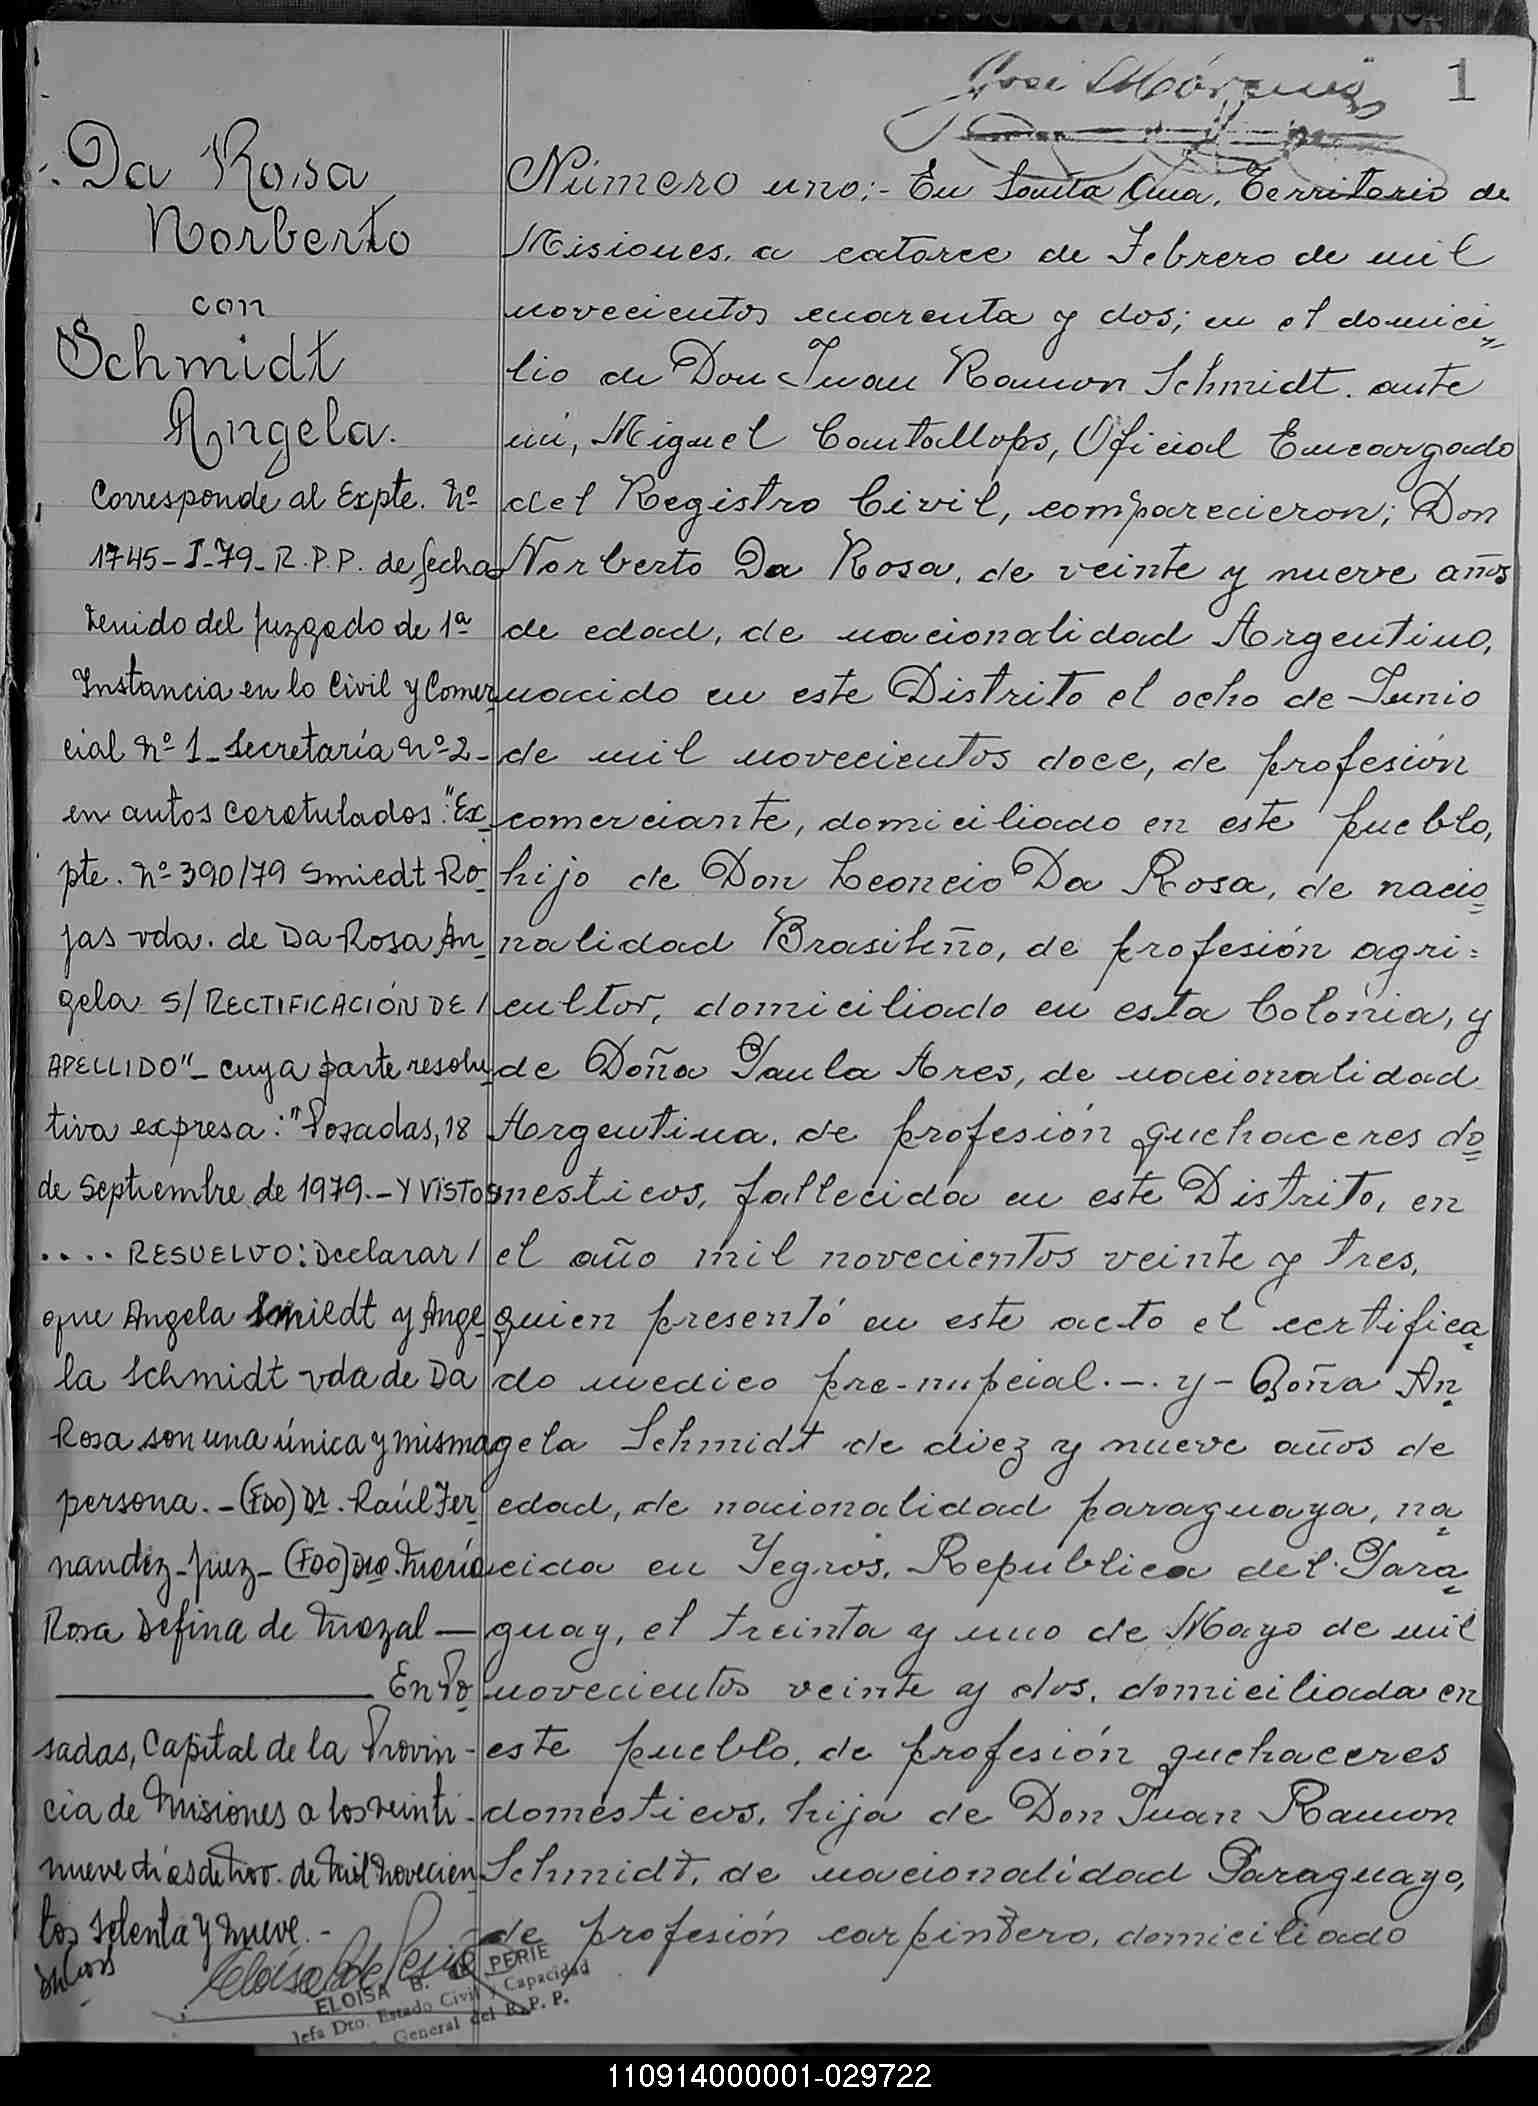 1
Da Rosa
Norberto
con
Schmidt
Angela.
Corresponde al Expte. Nº
1745-I-79-R.P.P. de fecha
tenido del juzgado de 1ª
Instancia en lo Civil y Comer
cial Nº 1 - Secretaría Nº 2 -
en autos caratulados: "Ex
pte. Nº 390/79 Smiedt Ro
jas vda. de Da Rosa An
gela S/ RECTIFICACIÓN DE /
APELLIDO" - cuya parte resolu
tiva expresa: "Posadas, 18
de Septiembre de 1979. - Y VISTOS
.... RESUELVO: Declarar /
que Angela Smiedt y Ange
la Schmidt vda de Da
Rosa son una única y misma
persona. - (FDO) Dr. Raúl Fer
nandez - juez - (FDO) María
Rosa Defina de —
En Po
sadas, Capital de la Provin-
cia de Misiones a los veinti-
nueve días de Nov. de Mil Novecien
tos setenta y nueve. -
Número uno:- En Santa Ana, Territorio de
Misiones, a catorce de Febrero de mil
novecientos cuarenta y dos; en el domici
lio de Don Juan Ramon Schmidt. ante
mí, Miguel Cantallops, Oficial Encargado
del Registro Civil, comparecieron; Don
Norberto Da Rosa, de veinte y nueve años
de edad, de nacionalidad Argentino,
nacido en este Distrito el ocho de Junio
de mil novecientos doce, de profesión
comerciante, domiciliado en este pueblo,
hijo de Don Leoncio Da Rosa, de nacio
nalidad Brasileño, de profesión agri=
cultor, domiciliado en esta Colonia, y
de Doña Paula Ares, de nacionalidad
Argentina, de profesión quehaceres do
mesticos, fallecida en este Distrito, en
el año mil novecientos veinte y tres,
quien presentó en este acto el certifica
do medico pre-nupcial. -. y - Doña An
gela Schmidt de diez y nueve años de
edad, de nacionalidad paraguaya, na
cida en Yegros, Republica del Para
guay, el treinta y uno de Mayo de mil
novecientos veinte y dos, domiciliada en
este pueblo, de profesión quehaceres
domésticos, hija de Don Juan Ramon
Schmidt, de nacionalidad Paraguayo,
de profesión carpintero, domiciliado
ELOISA B. de PERIE
Jefa Dto. Estado Civil y Capacidad
General del R. P. P.
110914000001-029722